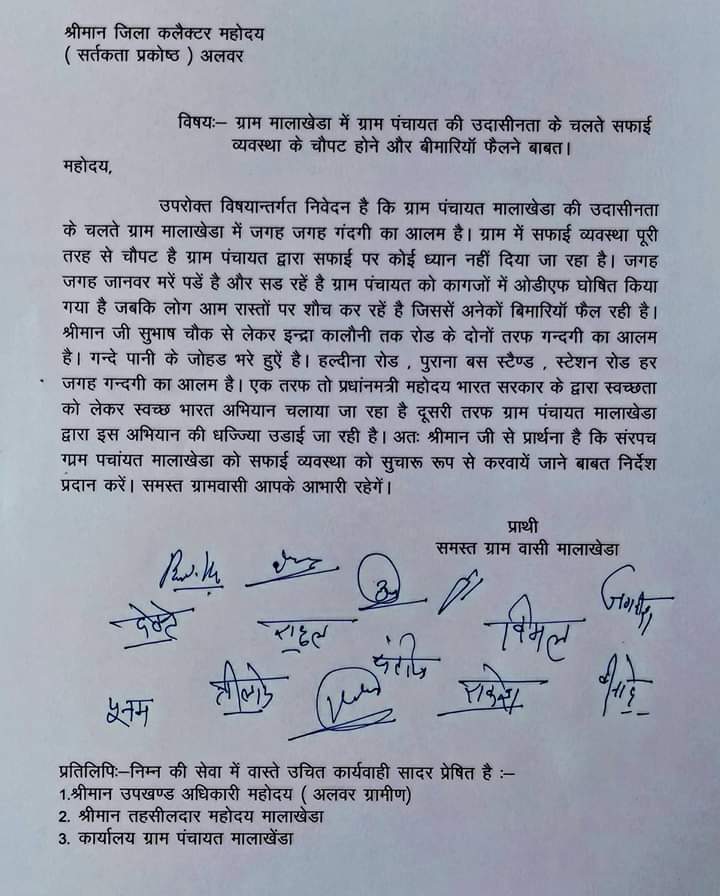 श्रीमान जिला कलैक्टर महोदय
( सर्तकता प्रकोष्ठ ) अलवर
विषयः– ग्राम मालाखेडा में ग्राम पंचायत की उदासीनता के चलते सफाई
व्यवस्था के चौपट होने और बीमारियॉ फैलने बाबत।
महोदय,
उपरोक्त विषयान्तर्गत निवेदन है कि ग्राम पंचायत मालाखेडा की उदासीनता
के चलते ग्राम मालाखेडा में जगह जगह गंदगी का आलम है। ग्राम में सफाई व्यवस्था पूरी
तरह से चौपट है ग्राम पंचायत द्वारा सफाई पर कोई ध्यान नहीं दिया जा रहा है। जगह
जगह जानवर मरें पडें है और सड रहें है ग्राम पंचायत को कागजों में ओडीएफ घोषित किया
गया है जबकि लोग आम रास्तों पर शौच कर रहें है जिससें अनेकों बिमारियॉ फैल रही है।
श्रीमान जी सुभाष चौक से लेकर इन्द्रा कालौनी तक रोड के दोनों तरफ गन्दगी का आलम
है। गन्दे पानी के जोहड भरे हुऐं है। हल्दीना रोड , पुराना बस स्टैण्ड , स्टेशन रोड हर
जगह गन्दगी का आलम है। एक तरफ तो प्रधांनमत्री महोदय भारत सरकार के द्वारा स्वच्छता
को लेकर स्वच्छ भारत अभियान चलाया जा रहा है दूसरी तरफ ग्राम पंचायत मालाखेडा
द्वारा इस अभियान की धज्जिया उडाई जा रही है। अतः श्रीमान जी से प्रार्थना है कि संरपच
ग्राम पचांयत मालाखेडा को सफाई व्यवस्था को सुचारू रूप से करवायें जाने बाबत निर्देश
प्रदान करें। समस्त ग्रामवासी आपके आभारी रहेगें।
प्राथी
समस्त ग्राम वासी मालाखेडा
राहुल विमल
पूनम राकेश
प्रतिलिपिः–निम्न की सेवा में वास्ते उचित कार्यवाही सादर प्रेषित है :–
1.श्रीमान उपखण्ड अधिकारी महोदय ( अलवर ग्रामीण)
2. श्रीमान तहसीलदार महोदय मालाखेडा
3. कार्यालय ग्राम पंचायत मालाखेंडा